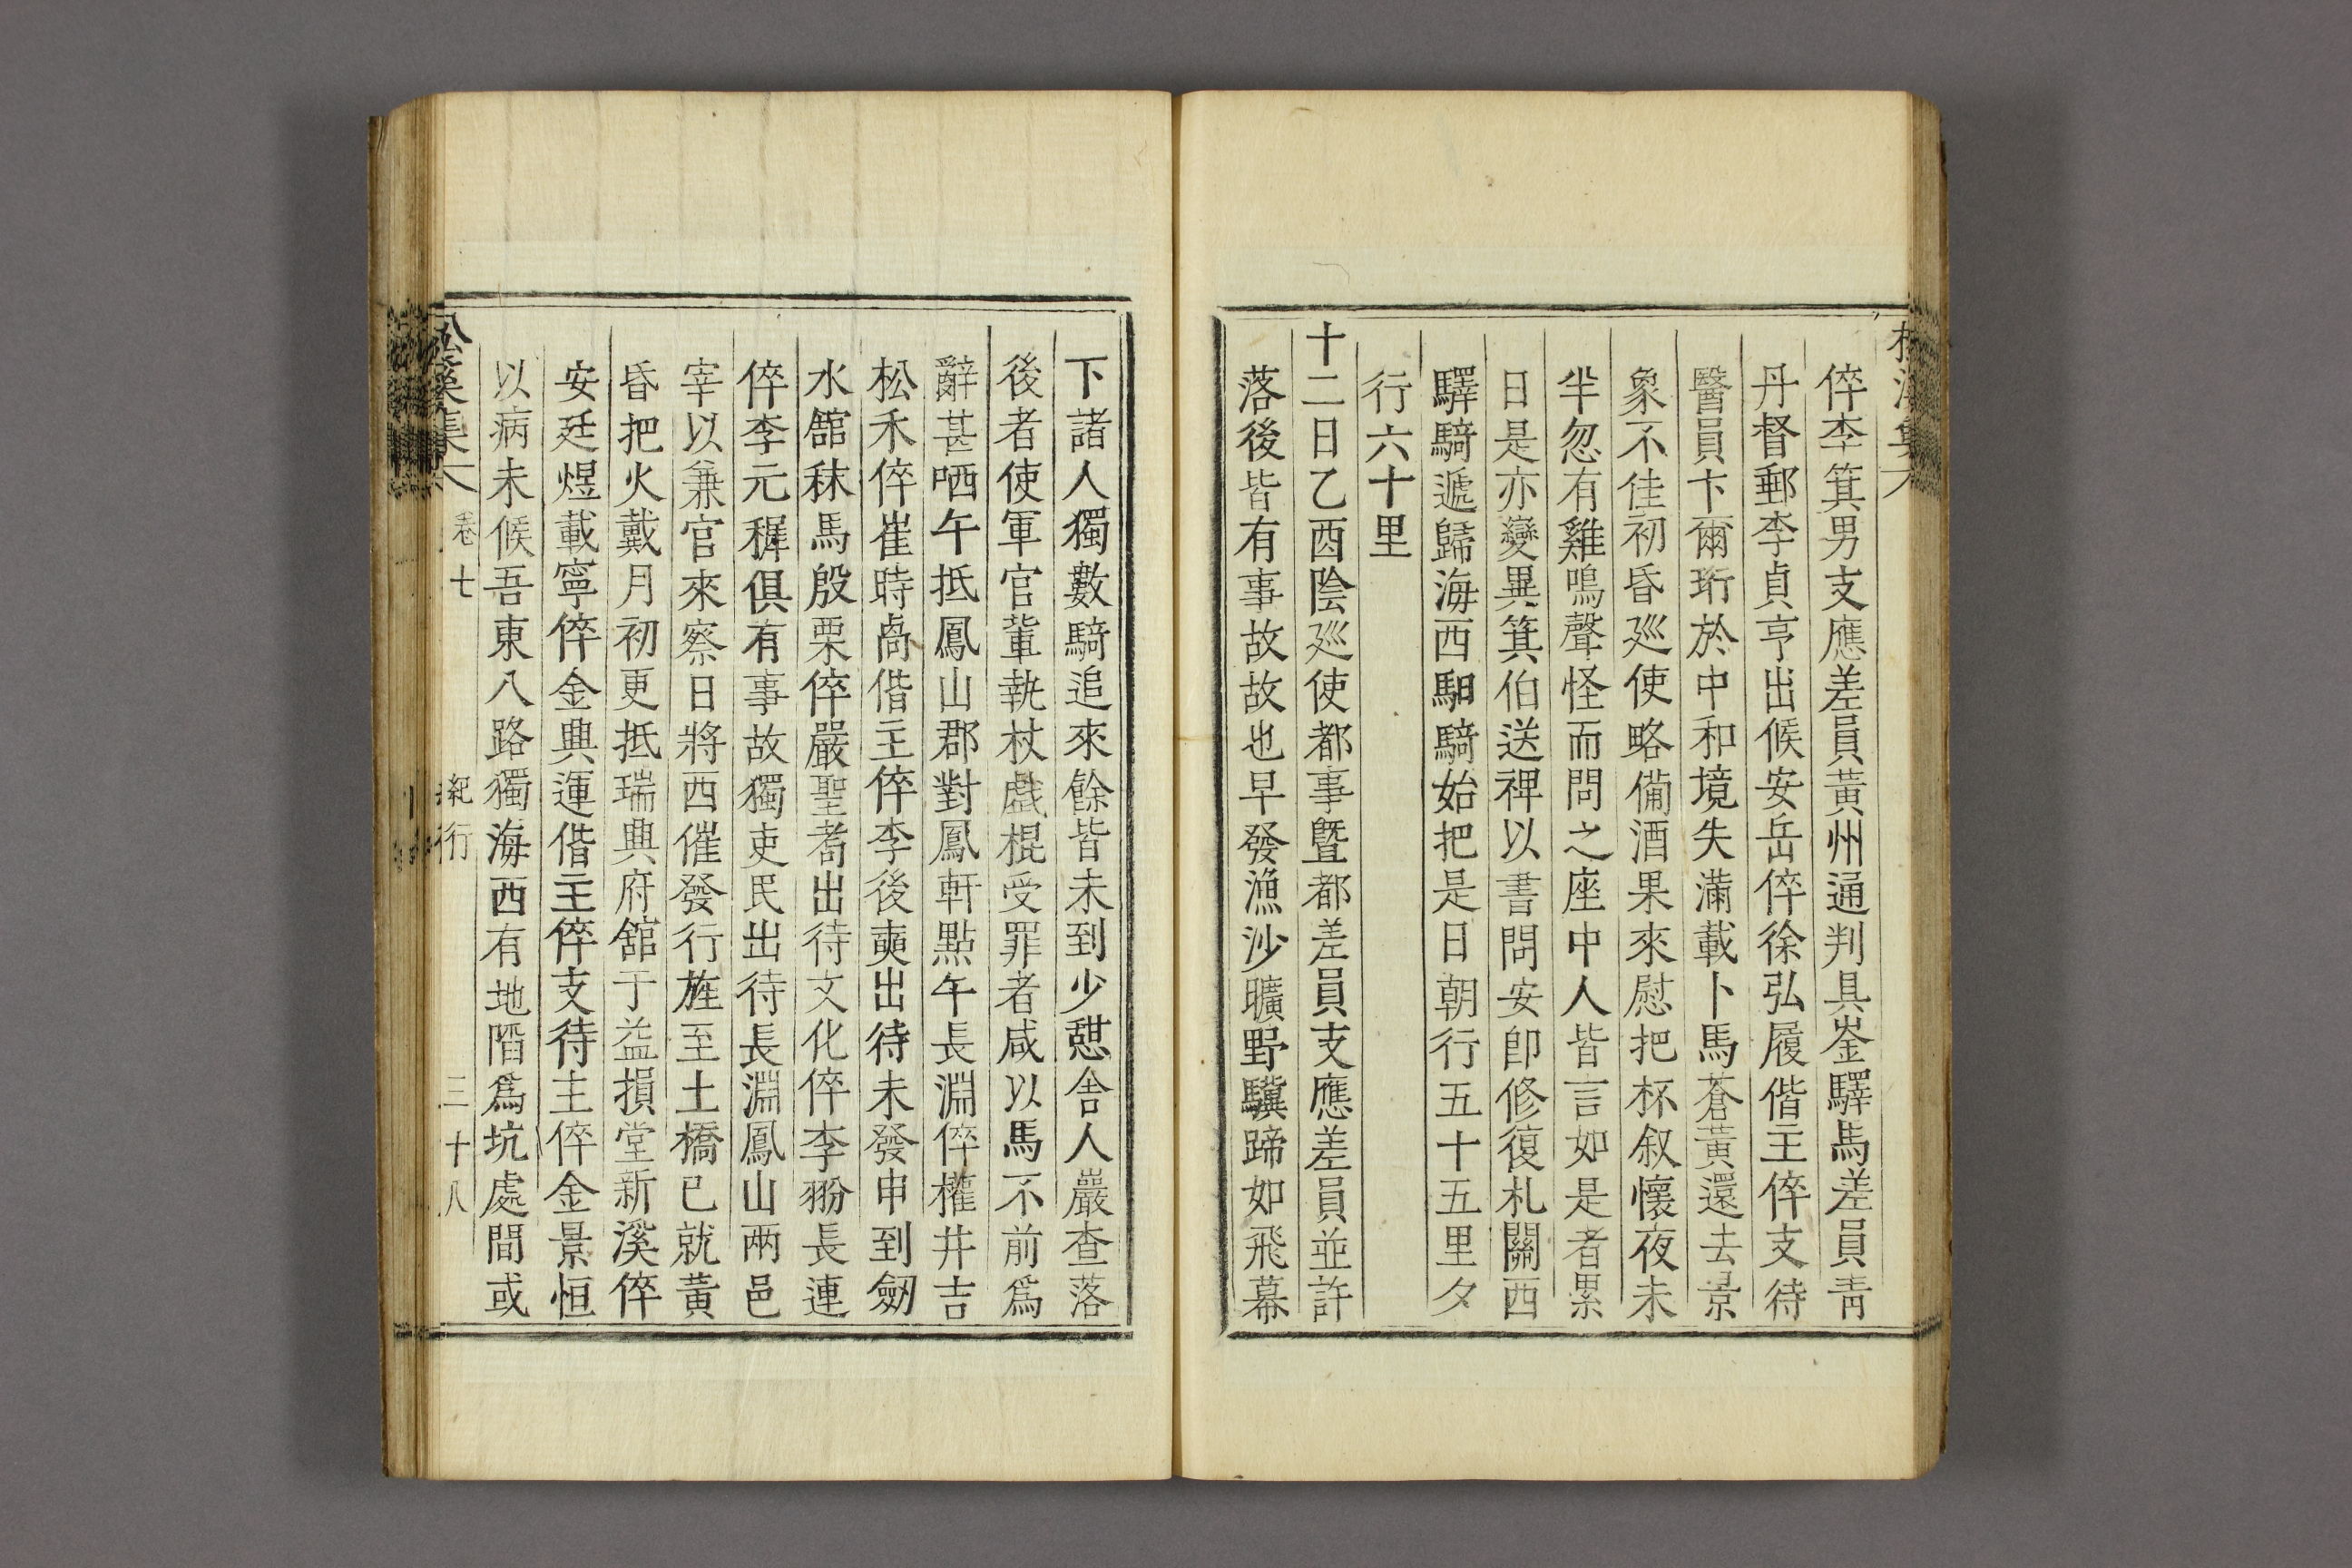 倅李箕男支應差員黃州通判具崟驛馬差員靑
丹督郵李貞亨出候安岳倅徐弘履偕主倅支待
醫員卞爾珩於中和境失滿載卜馬蒼黃還去景
象不佳初昏廵使略備酒果來慰把杯叙懷夜未
半忽有雞鳴聲怪而問之座中人皆言如是者累
日是亦變異箕伯送裨以書問安卽修復札關西
驛騎遞歸海西馹騎始把是日朝行五十五里夕
行六十里
十二日乙酉陰廵使都事曁都差員支應差員並許
落後皆有事故故也早發漁沙曠野驥蹄如飛幕
下諸人獨數騎追來餘皆未到少憇舍人巖查落
後者使軍官輩執杖戱棍受罪者咸以馬不前爲
辭甚哂午抵鳳山郡對鳳軒點午長淵倅權井吉
松禾倅崔時卨偕主倅李後奭出待未發申到劒
水舘秣馬殷栗倅嚴聖耈出待文化倅李翂長連
倅李元穉俱有事故獨吏民出待長淵鳳山兩邑
宰以兼官來察日將西催發行旌至土橋已就黃
昏把火戴月初更抵瑞興府舘于益損堂新溪倅
安廷煜載寧倅金興運偕主倅支待主倅金景恒
以病未候吾東八路獨海西有地陷爲坑處間或
松溪集 卷七 紀行 三十八